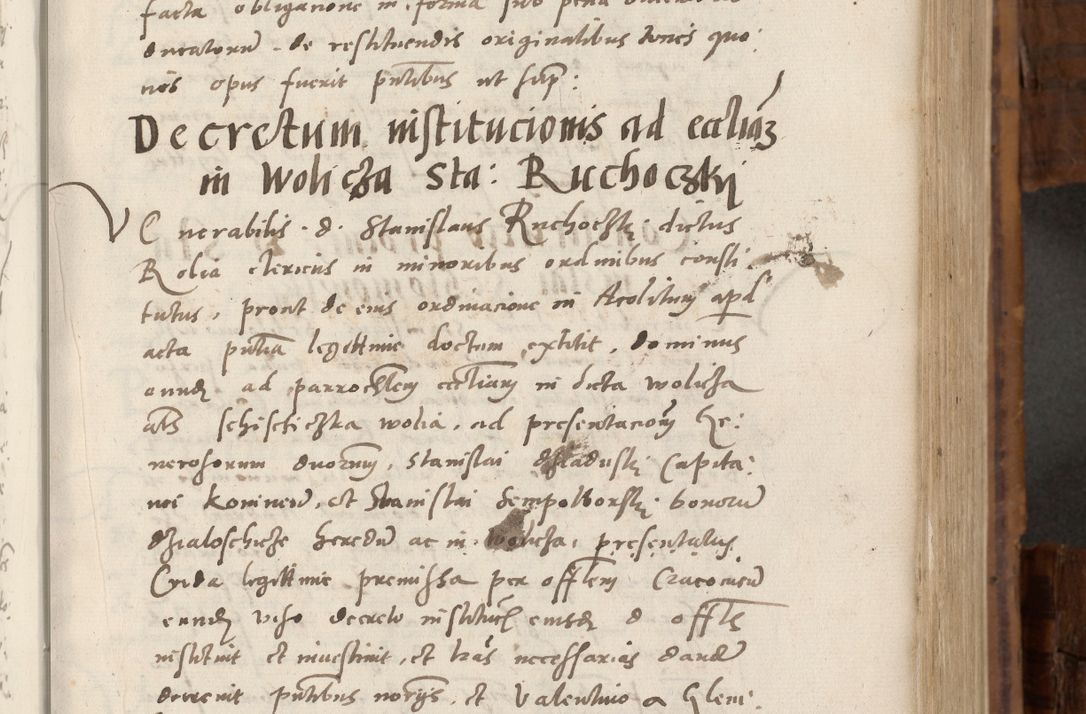 facta obligatione in forma sub pena
ducatorũ. de restituendis originalibus toties quo:
ties opus fuerit pñtibus ut supˢ:
Decretum institucionis ad eccliãз
in Wolicza Sta: Ruchoczkij
Venerabilis. d. Stanislaus Ruchoczkj dictus
Rolia clericus in minoribus ordinibus consti
tutus, prout de eius ordinacione in Acolitum apd
acta pñtia legittime doctum extitit, dominus
eundẽ ad parrochlem eccliam in dicta wolicza
als schischiczka wolia, ad presentacionẽ Ge:
nerosorum duorum, Stanislai dzladuskj Capita:
nei Koninen̄, et Stanislai Sempolborskj bonorũ
dzialoschicze heredũ ac in wolicza, presentatus
Crida legittime premissa per offlem Cracovieñ
eundẽ viso decreto instituti eiusdẽ d offls
instituit et investivit, et lras necessarias dandas
decrevit pñtibus notarijs, et Valentino a Glem: